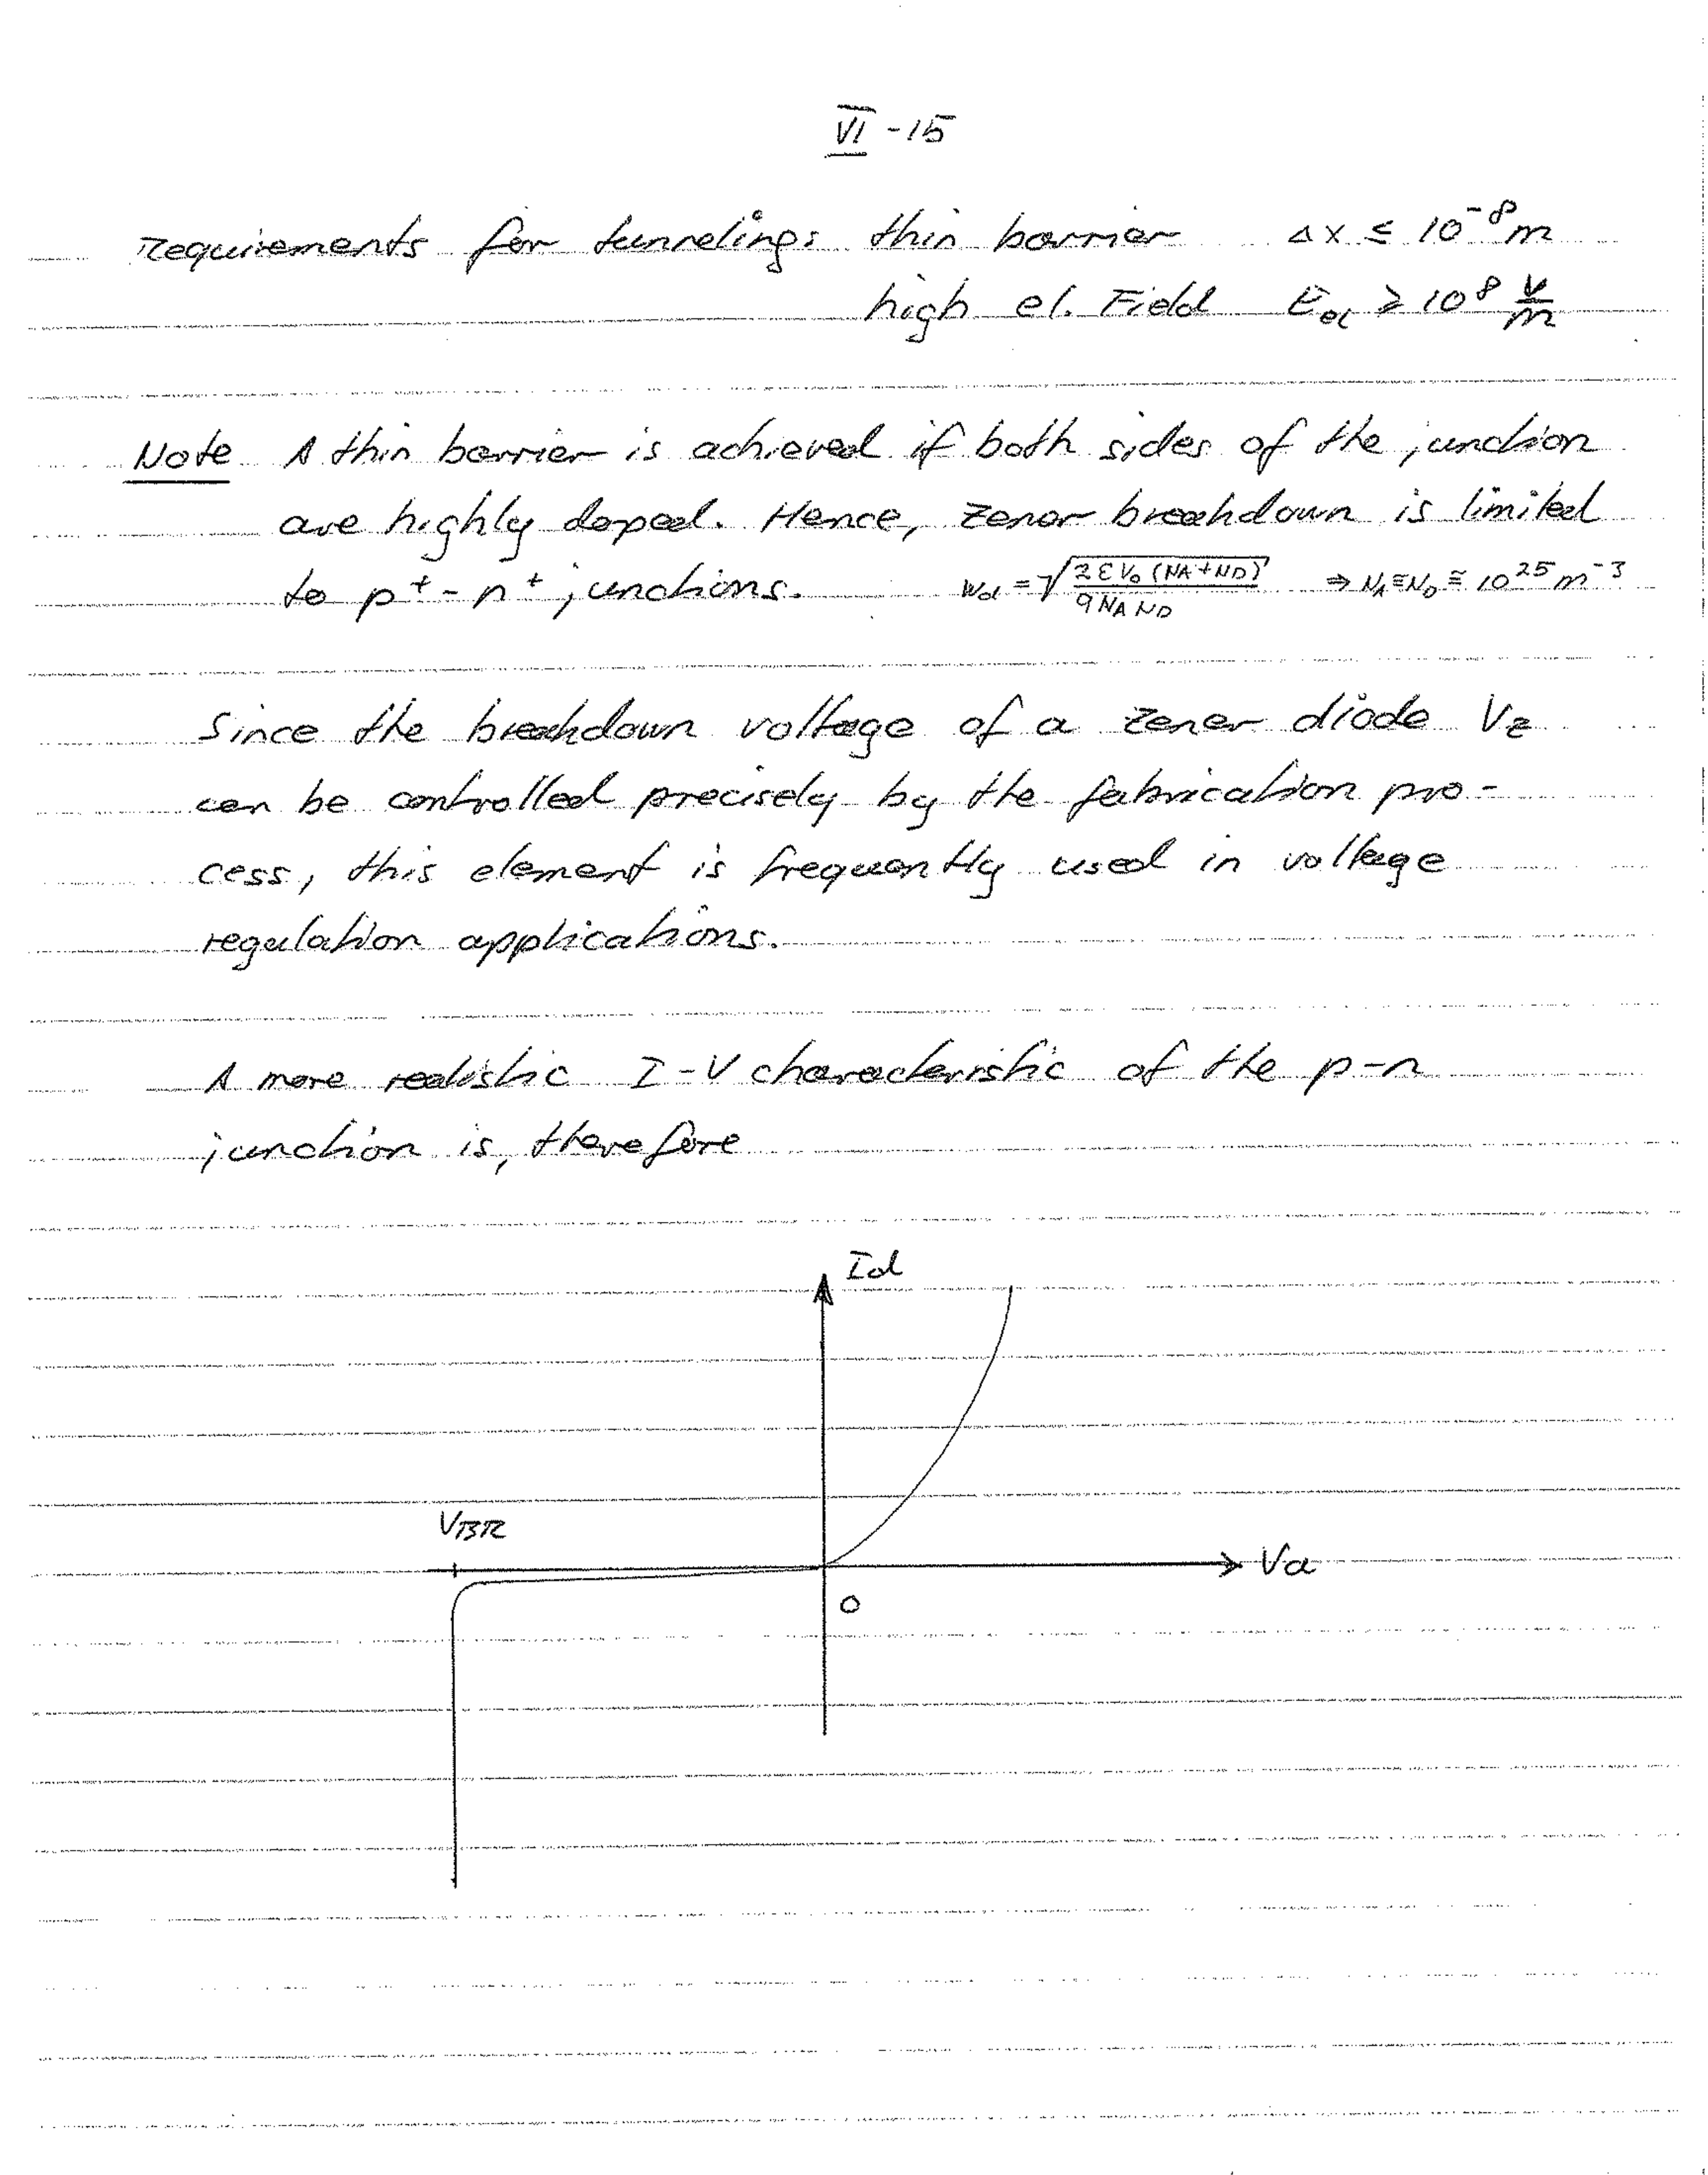 VI -15
requirements for tunneling: thin barrier Δx ≤ 10⁻⁸ m
high el. Field E_el ≥ 10⁸ V/m
Note A thin barrier is achieved if both sides of the junction
are highly doped. Hence, Zener breakdown is limited
to p⁺-n⁺ junctions. W_d = √(2εV₀(NA+ND)/qNAND) ⇒ N_A≅N_D≅10²⁵ m⁻³
Since the breakdown voltage of a Zener diode V_Z
can be controlled precisely by the fabrication pro-
cess, this element is frequently used in voltage
regulation applications.
A more realistic I-V characteristic of the p-n
junction is, therefore
Id
VBR
Va
0